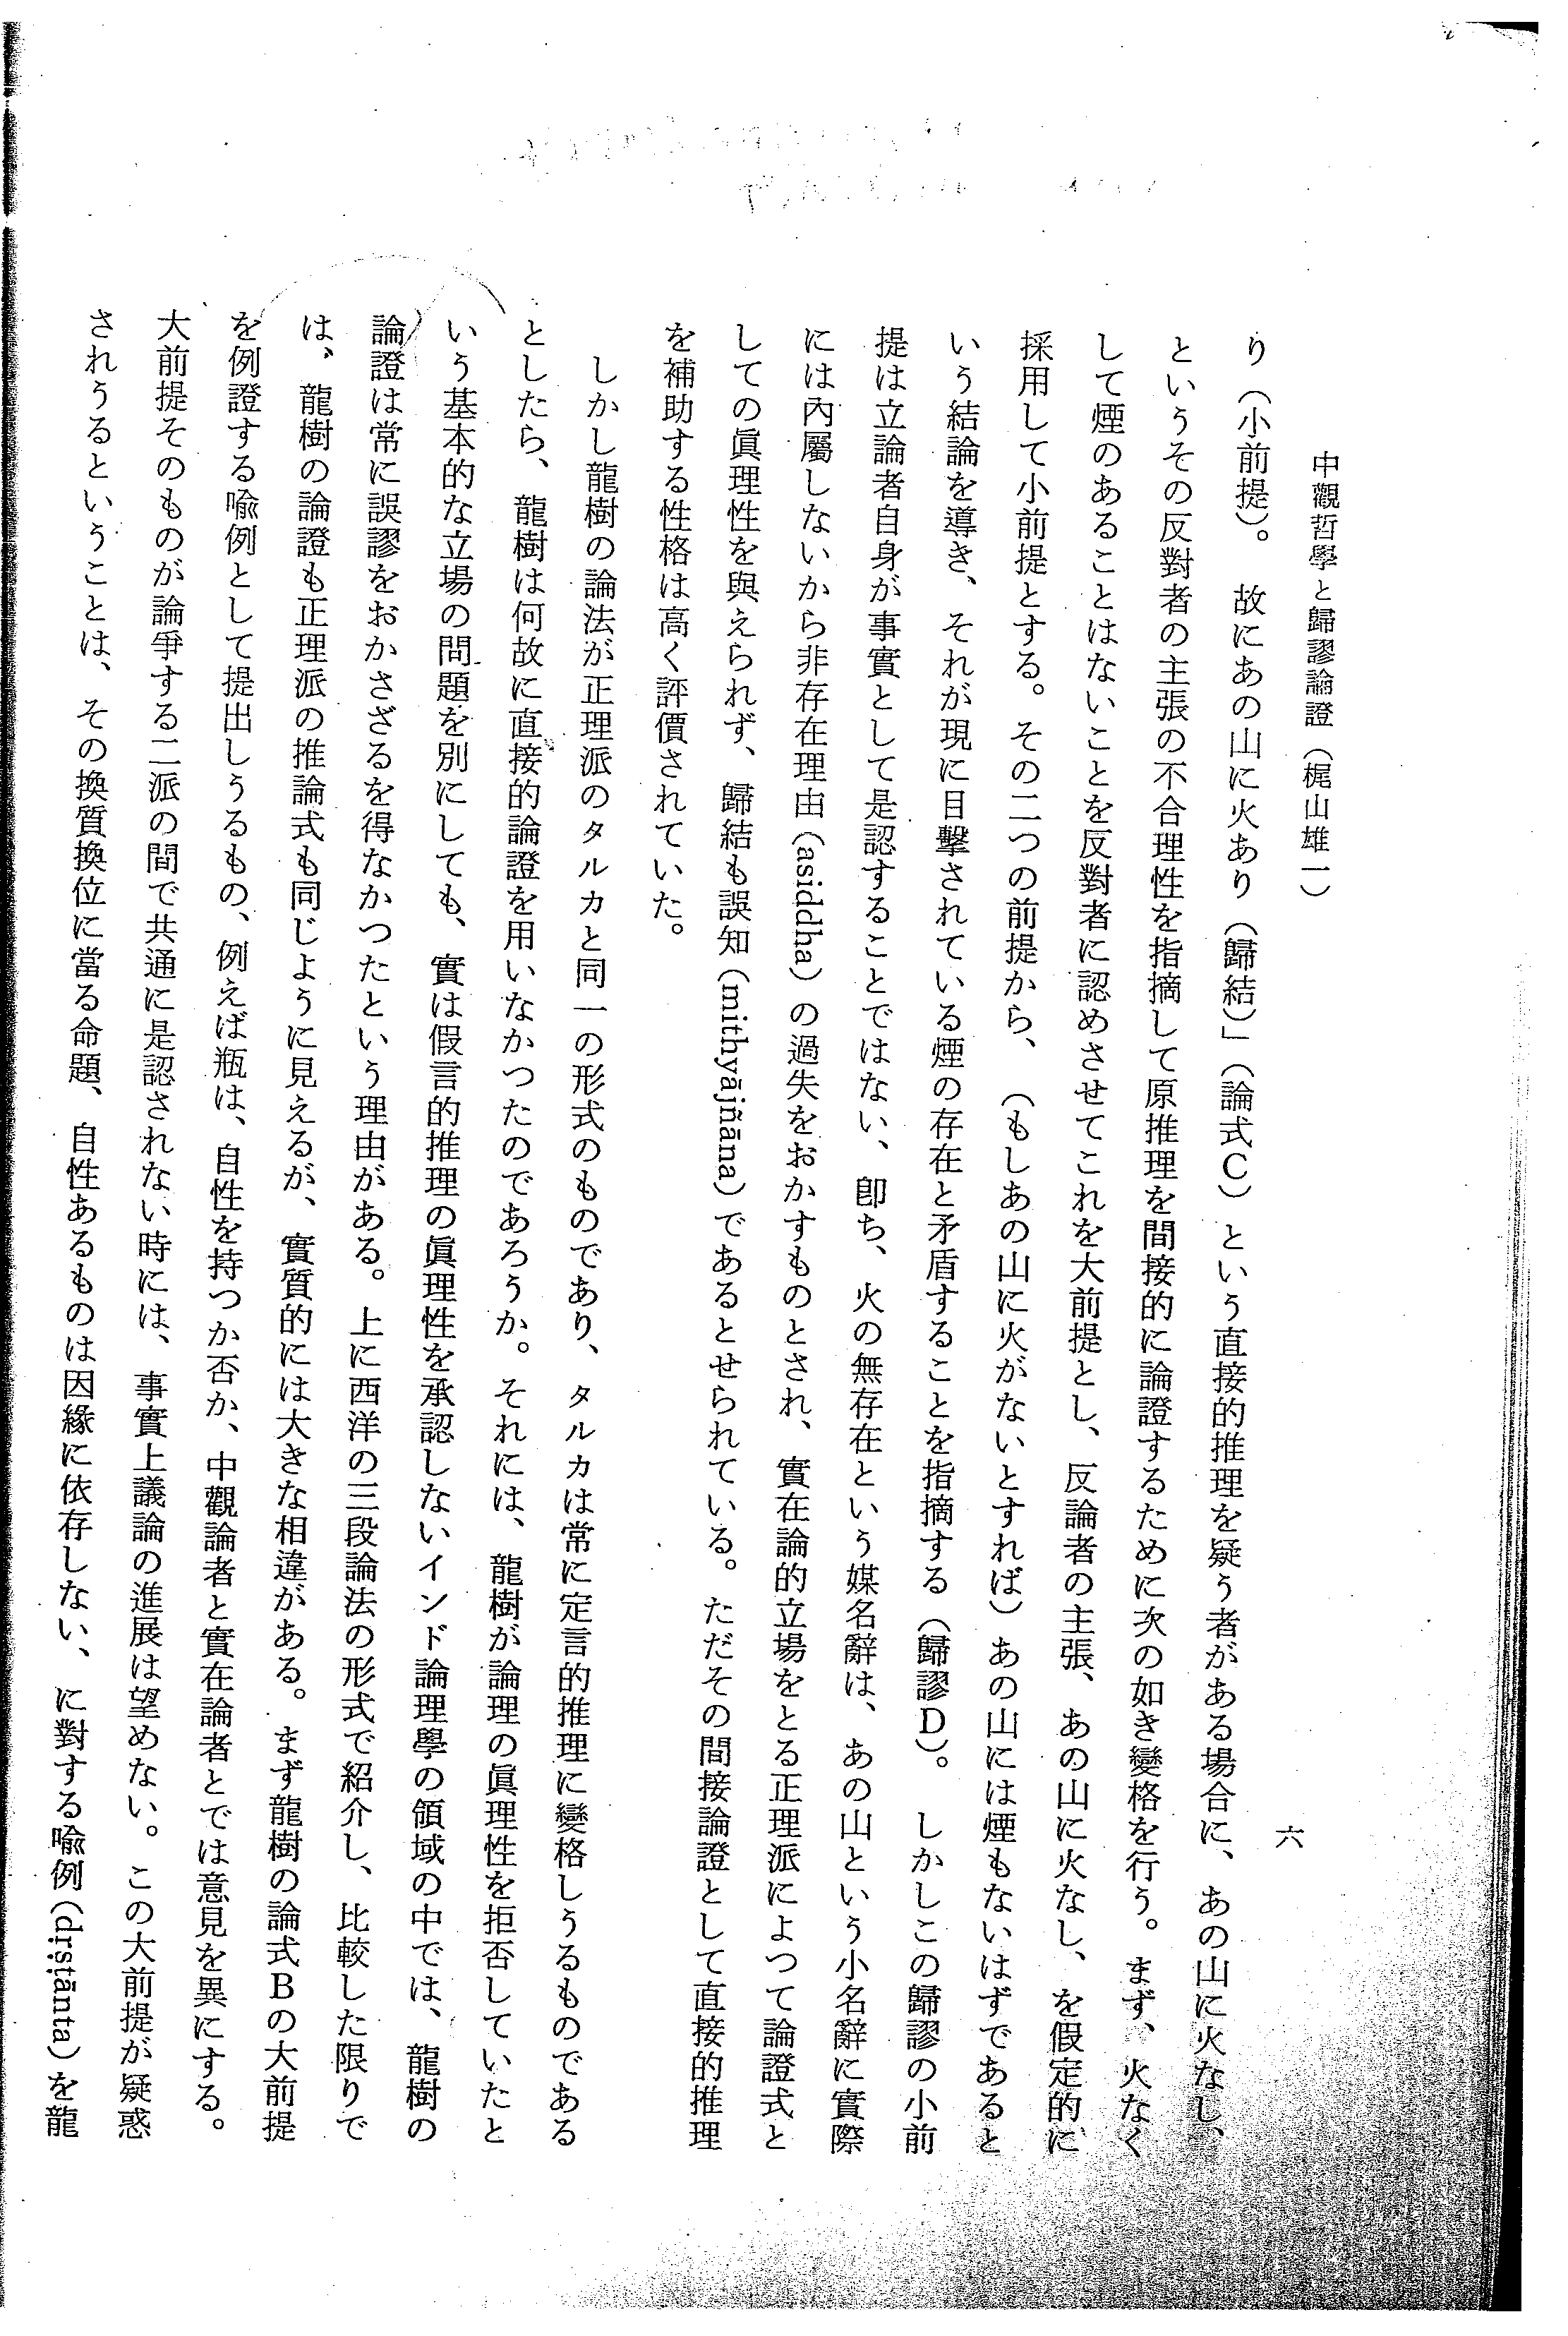 中觀哲學と歸謬論證（梶山雄一）
六
り（小前提）。故にあの山に火あり（歸結）」（論式Ｃ）という直接的推理を疑う者がある場合に、あの山に火なし、
というその反對者の主張の不合理性を指摘して原推理を間接的に論證するために次の如き變格を行う。まず、火なく
して煙のあることはないことを反對者に認めさせてこれを大前提とし、反論者の主張、あの山に火なし、を假定的に
採用して小前提とする。その二つの前提から、（もしあの山に火がないとすれば）あの山には煙もないはずであると
いう結論を導き、それが現に目擊されている煙の存在と矛盾することを指摘する（歸謬Ｄ）。しかしこの歸謬の小前
提は立論者自身が事實として是認することではない、卽ち、火の無存在という媒名辭は、あの山という小名辭に實際
には內屬しないから非存在理由（asiddha）の過失をおかすものとされ、實在論的立場をとる正理派によつて論證式と
しての眞理性を與えられず、歸結も誤知（mithyājñāna）であるとせられている。ただその間接論證として直接的推理
を補助する性格は高く評價されていた。
しかし龍樹の論法が正理派のタルカと同一の形式のものであり、タルカは常に定言的推理に變格しうるものである
としたら、龍樹は何故に直接的論證を用いなかつたのであろうか。それには、龍樹が論理の眞理性を拒否していたと
いう基本的な立場の問題を別にしても、實は假言的推理の眞理性を承認しないインド論理學の領域の中では、龍樹の
論證は常に誤謬をおかさざるを得なかつたという理由がある。上に西洋の三段論法の形式で紹介し、比較した限りで
は、龍樹の論證も正理派の推論式も同じように見えるが、實質的には大きな相違がある。まず龍樹の論式Ｂの大前提
を例證する喩例として提出しうるもの、例えば瓶は、自性を持つか否か、中觀論者と實在論者とでは意見を異にする。
大前提そのものが論爭する二派の間で共通に是認されない時には、事實上議論の進展は望めない。この大前提が疑惑
されうるということは、その換質換位に當る命題、自性あるものは因緣に依存しない、に對する喩例（dṛṣṭānta）を龍